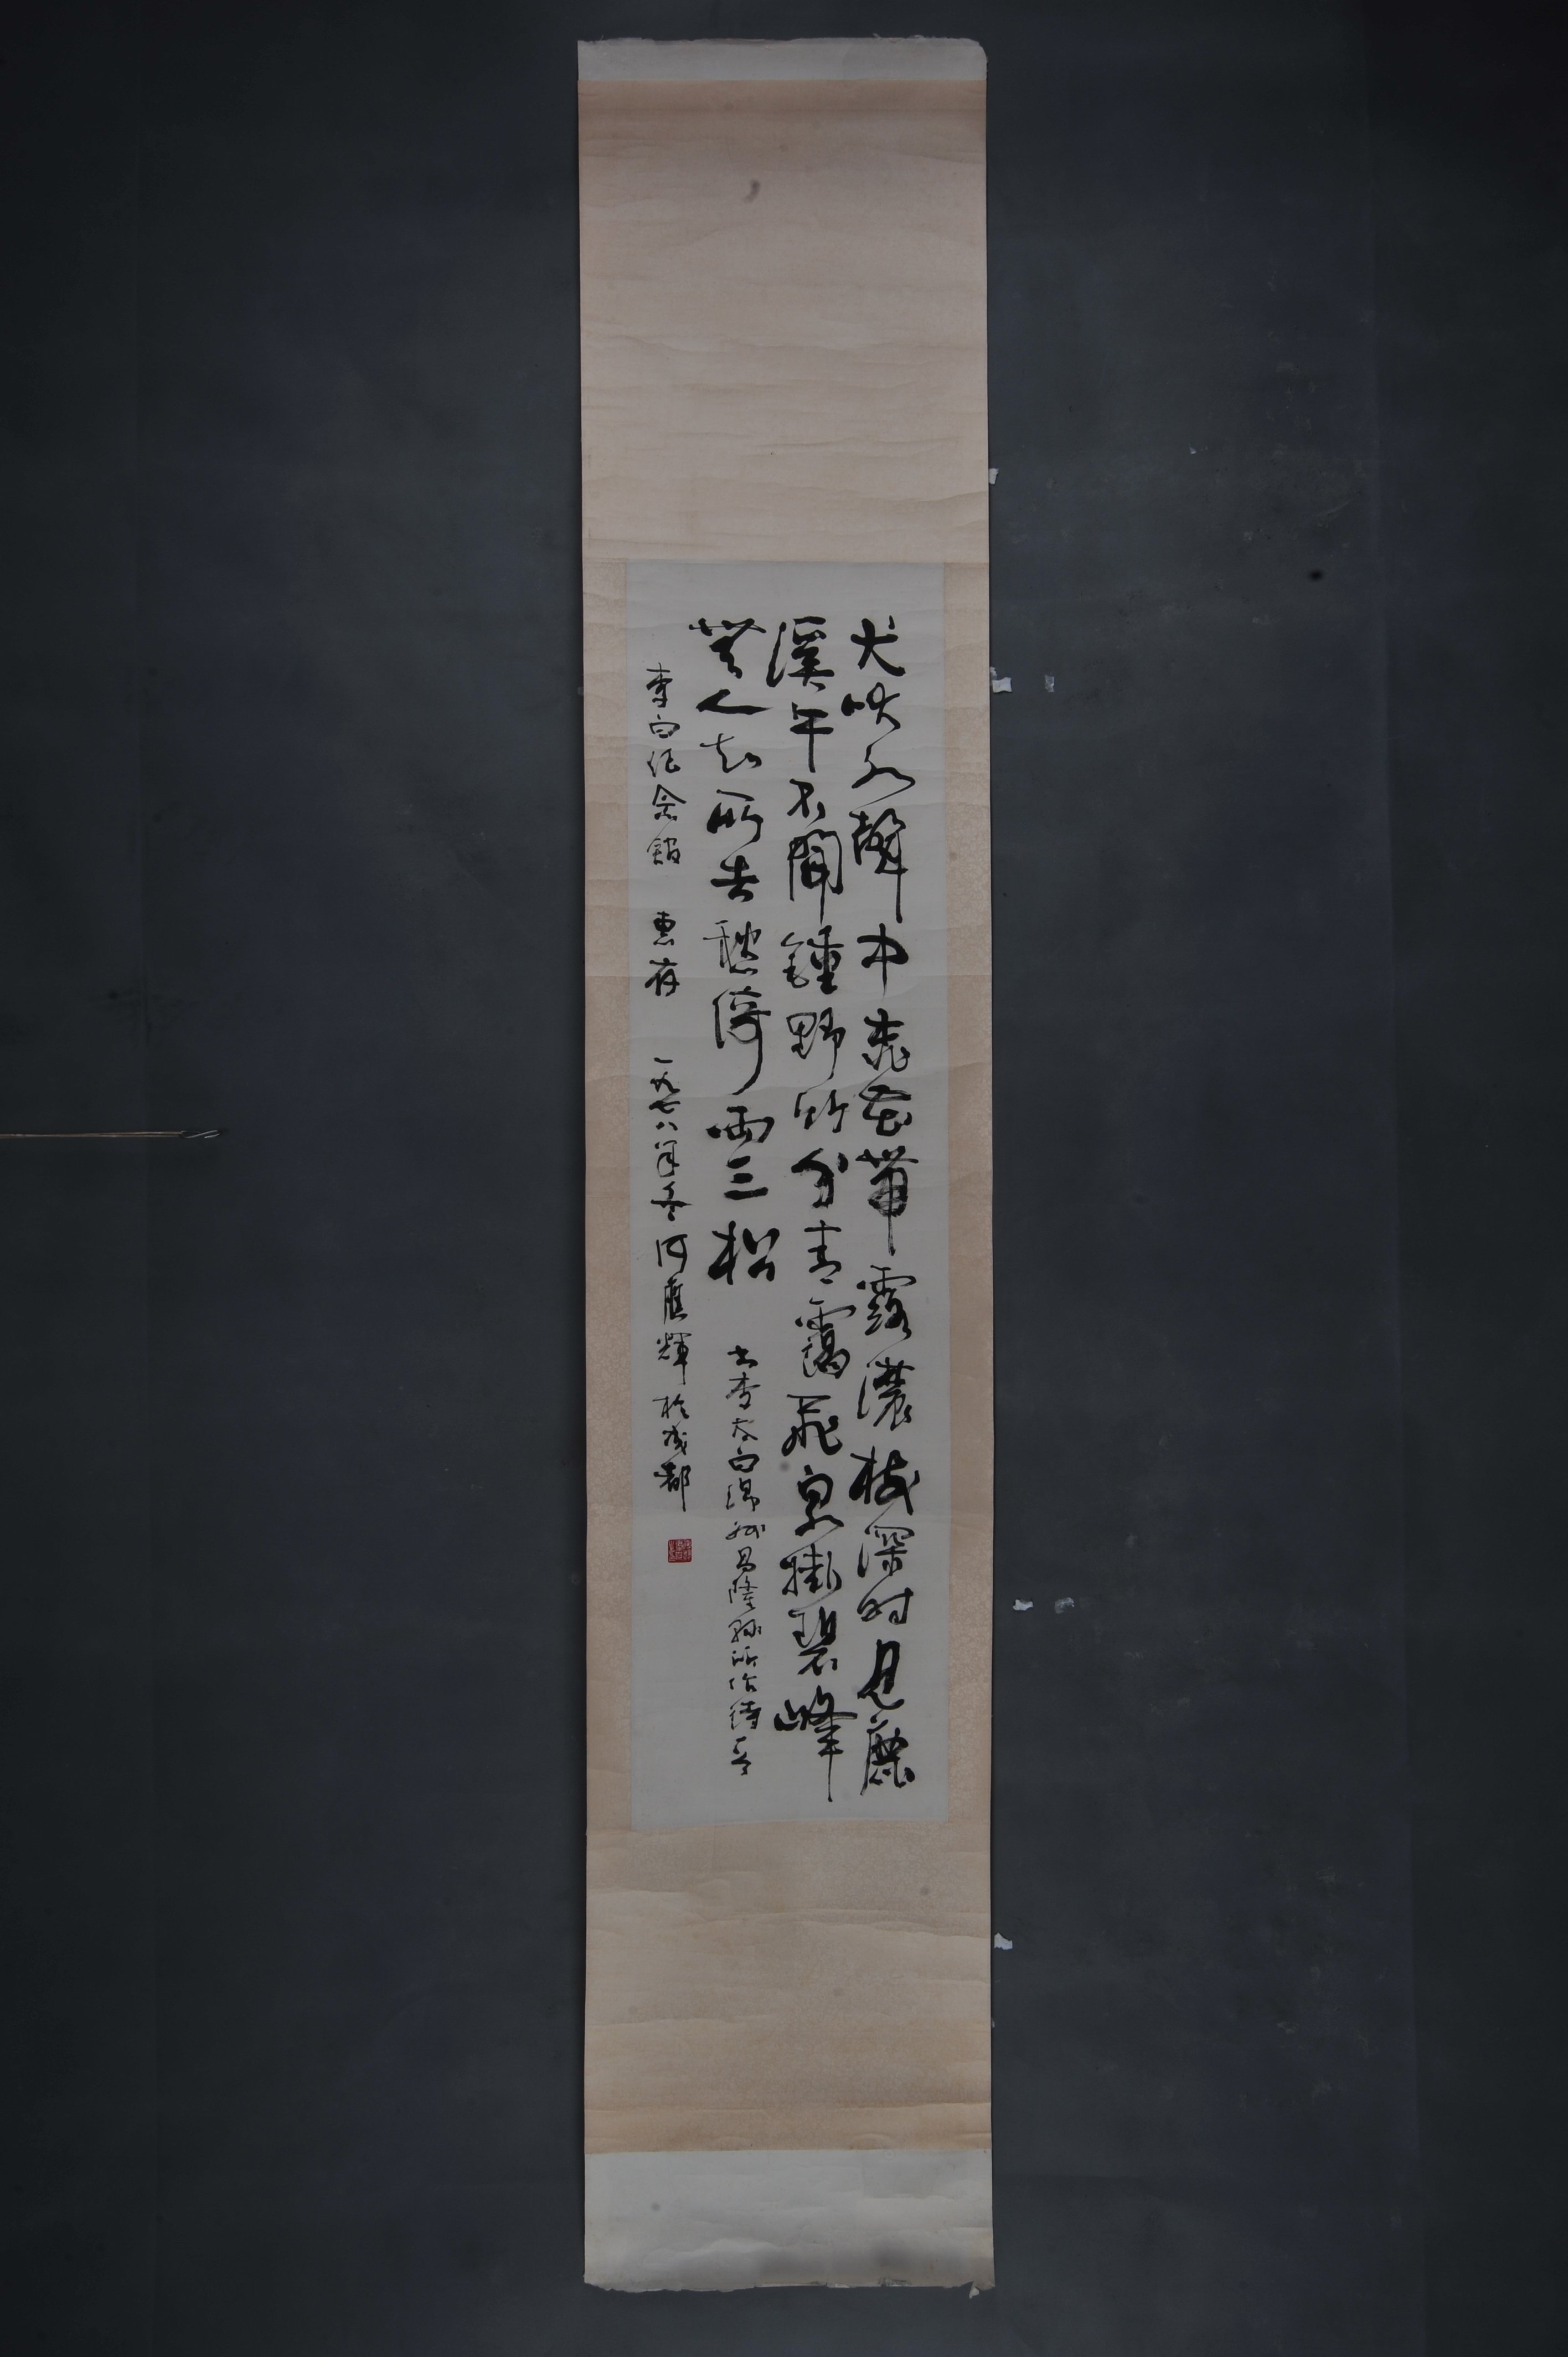 犬吠水聲中桃花帶露濃樹深時見鹿
溪午不聞鍾野竹分青靄飛泉掛碧峰
無人知所去愁倚兩三松
書李太白綿州昌隆縣所作詩一首
李白纪念館 惠存 一九七八年冬 何應輝 於成都